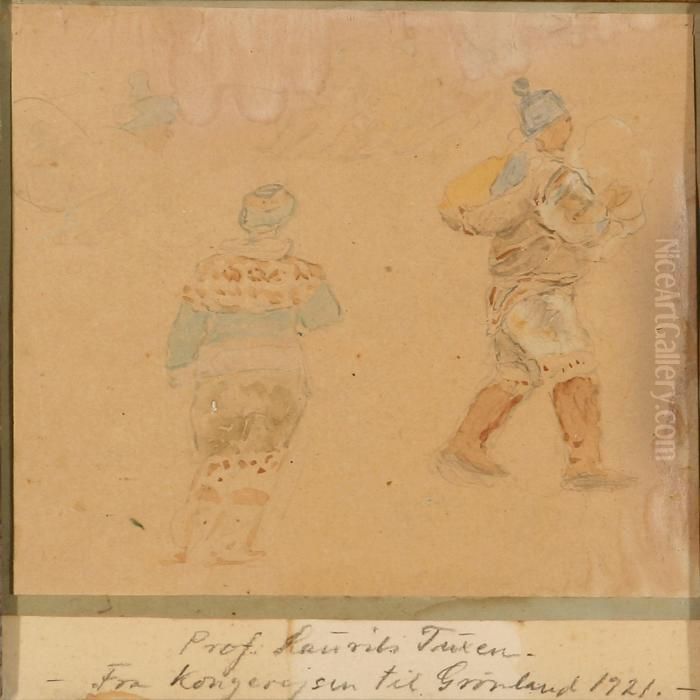 Prof. Laurits Tuxen.
- Fra Kongerejsen til Grönland 1921. -
NiceArtGallery.com